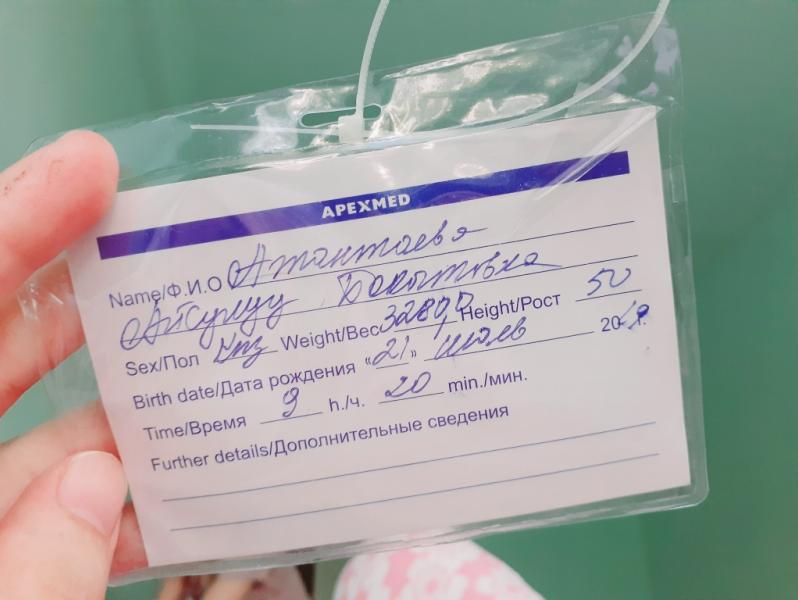 APEXMED
Name/Ф.И.О Атантаева
Айсулуу Бакытовна
Sex/Пол Weight/Вес 3280,0 Height/Рост 50
Birth date/Дата рождения «21» июль 20 г.
Time/Время 9 h./ч. 20 min./мин.
Further details/Дополнительные сведения